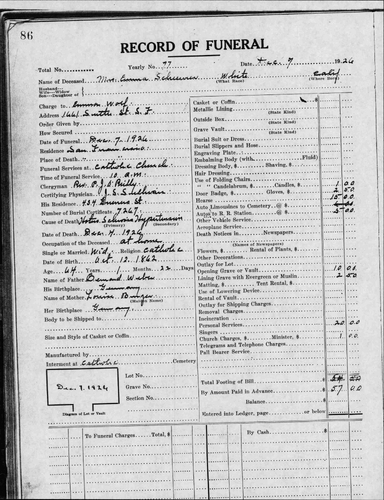 86
RECORD OF FUNERAL
Total No. Yearly No. 77 Date Dec 7 1926
Name of Deceased Mrs. Emma Schreiver White
(What Race) (Where Born)
Husband
Wife—Widow
Son—Daughter of
Charge to Emma Wolf
Address 1661 Smith St. S.F.
Order Given by
How Secured
Date of Funeral Dec. 7, 1926
Residence San Francisco
Place of Death
Funeral Services at Catholic Church
Time of Service 10 a.m.
Clergyman Rev. P. J. O'Reilly
Certifying Physician J. S. Sullivan
His Residence St.
Number of Burial Certificate 7267
Cause of Death
(Primary) (Secondary)
Date of Death Dec. 4, 1926
Occupation of the Deceased at home
Single or Married Wid. Religion Catholic
Date of Birth Oct. 12, 1862
Age 64 Years 1 Months 22 Days
Name of Father Bernard Weber
His Birthplace Germany
Name of Mother Louisa
(Maiden Name)
Her Birthplace Germany
Body to be Shipped to
Size and Style of Casket or Coffin
Manufactured by
Interment at Catholic Cemetery
Lot No.
Grave No.
Section No.
Dec. 7, 1926
Diagram of Lot or Vault
Casket or Coffin
Metallic Lining
(State Kind)
Outside Box
(State Kind)
Grave Vault
(State Kind)
Burial Suit or Dress
Burial Slippers and Hose
Engraving Plate
Embalming Body (with Fluid)
Dressing Body, $ Shaving, $
Hair Dressing
Use of Folding Chairs
" " Candelabrum, $ Candles, $ 1 00
Door Badge, $ Gloves, $ 2 50
Hearse 15 00
Auto Limousines to Cemetery, @ $
Autos to R. R. Station, @ $ 5 00
Other Vehicle Service
Aeroplane Service
Death Notices in Newspapers
(Names of Newspapers)
Flowers, $ Rental of Plants, $
Other Decorations
Outlay for Lot
Opening Grave or Vault 10 00
Lining Grave with Evergreen or Muslin 2 50
Matting, $ Tent Rental, $
Use of Lowering Device
Rental of Vault
Outlay for Shipping Charges
Removal Charges
Incineration
Personal Services 20 00
Singers
Church Charges, $ Minister, $ 1 00
Telegrams and Telephone Charges
Pall Bearer Service
Total Footing of Bill $
By Amount Paid in Advance 57 00
Balance
Entered into Ledger, page or below
To Funeral Charges Total, $ By Cash $